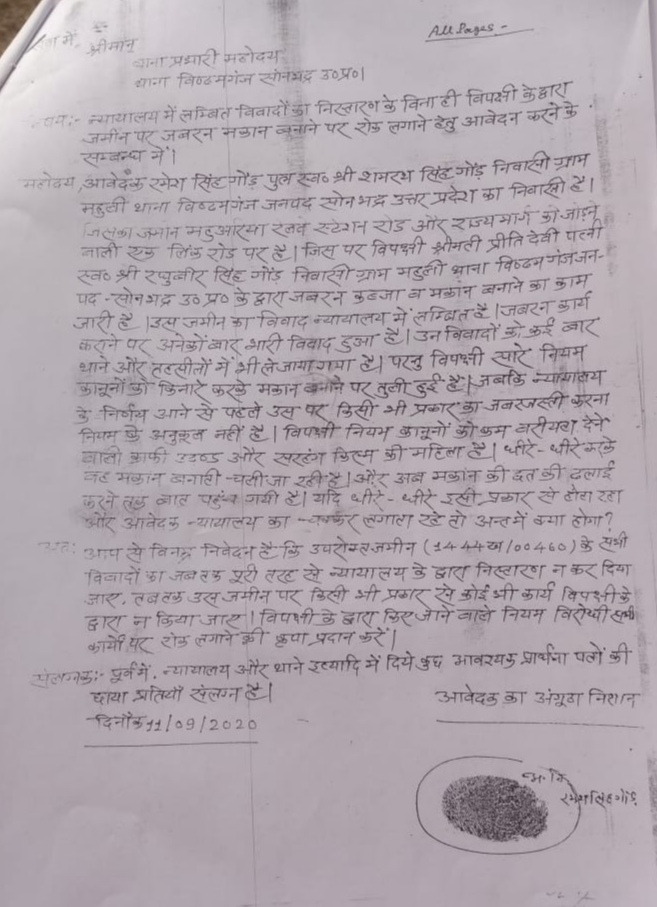 All Pages -
सेवा में, श्रीमान्
थाना प्रभारी महोदय
थाना विण्ढमगंज सोनभद्र उ०प्र०।
विषय:- न्यायालय में लम्बित विवादों का निस्तारण के विना ही विपक्षी के द्वारा
जमीन पर जबरन मकान बनाने पर रोक लगाने हेतु आवेदन करने के
सम्बन्ध में।
महोदय, आवेदक रमेश सिंह गोंड़ पुत्र स्व० श्री रामरथ सिंह गोंड़ निवासी ग्राम
महुली थाना विण्ढमगंज जनपद सोनभद्र उत्तर प्रदेश का निवासी है।
जिसका जमीन महुअरिया रेलवे स्टेशन रोड और राज्य मार्ग को जोड़ने
वाली एक लिंक रोड पर है। जिस पर विपक्षी श्रीमती प्रीति देवी पत्नी
स्व० श्री रघुबीर सिंह गोंड़ निवासी ग्राम महुली थाना विण्ढमगंज जन-
पद -सोनभद्र उ० प्र० के द्वारा जबरन कब्जा व मकान बनाने का काम
जारी है। उस जमीन का विवाद न्यायालय में लम्बित है। जबरन कार्य
कराने पर अनेकों बार भारी विवाद हुआ है। उन विवादों को कई बार
थाने और तहसीलों में भी ले जाया गया है। परन्तु विपक्षी सारे नियम
कानूनों को किनारे करके मकान बनाने पर तुली हुई है। जबकि न्यायालय
के निर्णय आने से पहले उस पर किसी भी प्रकार का जबरजस्ती करना
नियम के अनुकूल नहीं है। विपक्षी नियम कानूनों को कम वरीयता देने
वाली काफी उदण्ड और सरहंग किस्म की महिला है। धीरे - धीरे करके
वह मकान बनाती -चली जा रही है। और अब मकान की छत की ढलाई
करने तक बात पहुंच गयी है। यदि धीरे - धीरे इसी प्रकार से होता रहा
और आवेदक न्यायालय का चक्कर लगाता रहे तो अन्त में क्या होगा?
अतः आप से विनम्र निवेदन है कि उपरोक्त जमीन (1444ख/00460) के सभी
विवादों का जबतक पूरी तरह से न्यायालय के द्वारा निस्तारण न कर दिया
जाए, तबतक उस जमीन पर किसी भी प्रकार से कोई भी कार्य विपक्षी के
द्वारा न किया जाए। विपक्षी के द्वारा किए जाने वाले नियम विरोधी सभी
कार्यों पर रोक लगाने की कृपा प्रदान करें।
संलग्नक:- पूर्व में, न्यायालय और थाने इत्यादि में दिये कुछ आवश्यक प्रार्थना पत्रों की
छाया प्रतियाँ संलग्न है।
आवेदक का अंगूठा निशान
दिनाँक 11/09/2020
अ. नि.
रमेश सिंह गोंड़